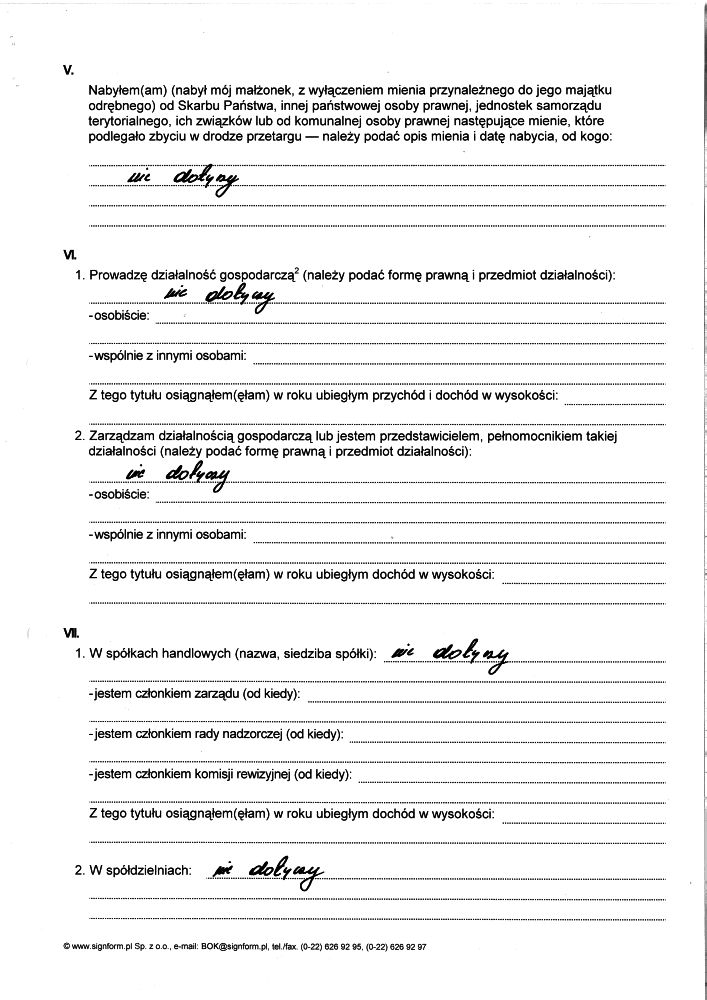 V.
Nabyłem(am) (nabył mój małżonek, z wyłączeniem mienia przynależnego do jego majątku
odrębnego) od Skarbu Państwa, innej państwowej osoby prawnej, jednostek samorządu
terytorialnego, ich związków lub od komunalnej osoby prawnej następujące mienie, które
podlegało zbyciu w drodze przetargu — należy podać opis mienia i datę nabycia, od kogo:
nie dotyczy
VI.
1. Prowadzę działalność gospodarczą² (należy podać formę prawną i przedmiot działalności):
nie dotyczy
-osobiście:
-wspólnie z innymi osobami:
Z tego tytułu osiągnąłem(ęłam) w roku ubiegłym przychód i dochód w wysokości:
2. Zarządzam działalnością gospodarczą lub jestem przedstawicielem, pełnomocnikiem takiej
działalności (należy podać formę prawną i przedmiot działalności):
nie dotyczy
-osobiście:
-wspólnie z innymi osobami:
Z tego tytułu osiągnąłem(ęłam) w roku ubiegłym dochód w wysokości:
VII.
1. W spółkach handlowych (nazwa, siedziba spółki): nie dotyczy
-jestem członkiem zarządu (od kiedy):
-jestem członkiem rady nadzorczej (od kiedy):
-jestem członkiem komisji rewizyjnej (od kiedy):
Z tego tytułu osiągnąłem(ęłam) w roku ubiegłym dochód w wysokości:
2. W spółdzielniach: nie dotyczy
© www.signform.pl Sp. z o.o., e-mail: BOK@signform.pl, tel./fax. (0-22) 626 92 95, (0-22) 626 92 97